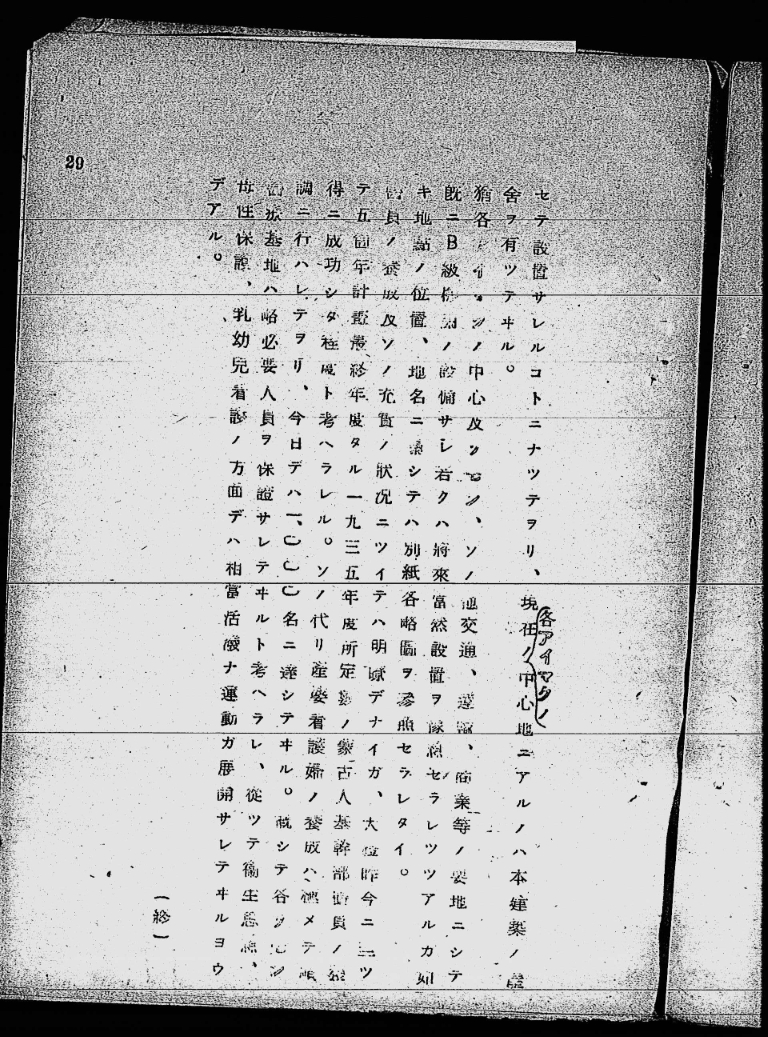 29
セテ設置サレルコトニナツテヲリ、現在ノ中心地ニアルノハ本建築ノ
各アイマクノ
舍ヲ有ツテヰル。
猶各アイマクノ中心及ソモン、ソノ他交通、運輸、商業等ノ要地ニシテ
既ニB級機關ノ設備サレ若クハ將來當然設置ヲ豫想セラレツツアルカ如
キ地點ノ位置、地名ニ關シテハ別紙各略圖ヲ參照セラレタイ。
員ノ養成及ソノ充實ノ狀況ニツイテハ明瞭デナイガ、大體昨今ニ三ツ
テ五個年計畫最終年度タル一九三五年度所定數ノ蒙古人基幹部員ノ
得ニ成功シタ程度ト考ヘラレル。ソノ代リ產婆看護婦ノ養成ハ極メテ順
調ニ行ハレテヲリ、今日デハ一、〇〇〇名ニ達シテヰル。概シテ各
基地ハ略必要人員ヲ保證サレテヰルト考ヘラレ、從ツテ衞生思想、
母性保護、乳幼兒看護ノ方面デハ相當活潑ナ運動ガ展開サレテヰルヨウ
デアル。
(終)